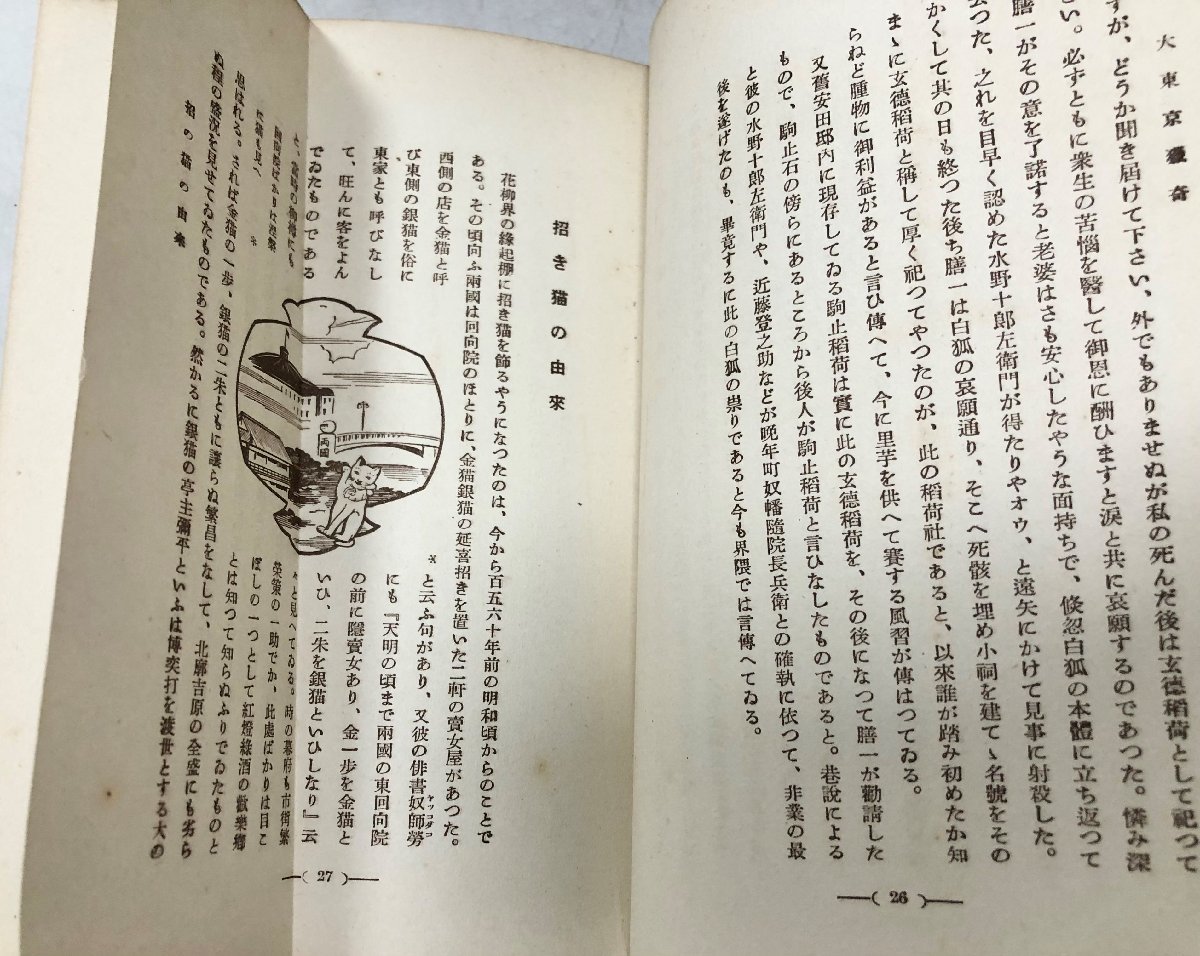 大東京獵奇
すが、どうか聞き屆けて下さい、外でもありませぬが私の死んだ後は玄德稻荷として祀つて
さい。必ずともに衆生の苦惱を醫して御恩に酬ひますと淚と共に哀願するのであつた。憐み深
膳一がその意を了諾すると老婆はさも安心したやうな面持ちで、倐忽白狐の本體に立ち返つて
去つた、之れを目早く認めた水野十郎左衛門が得たりやオウ、と遠矢にかけて見事に射殺した。
かくして其の日も終つた後ち膳一は白狐の哀願通り、そこへ死骸を埋め小祠を建てゝ名號をその
まゝに玄德稻荷と稱して厚く祀つてやつたのが、此の稻荷社であると、以來誰が踏み初めたか知
らねど腫物に御利益があると言ひ傳へて、今に里芋を供へて賽する風習が傳はつてゐる。
又舊安田邸内に現存してゐる駒止稻荷は實に此の玄德稻荷を、その後になつて膳一が勸請した
もので、駒止石の傍らにあるところから後人が駒止稻荷と言ひなしたものであると。巷說による
と彼の水野十郎左衛門や、近藤登之助などが晩年町奴幡隨院長兵衛との確執に依つて、非業の最
後を遂げたのも、畢竟するに此の白狐の祟りであると今も界隈では言傳へてゐる。
—( 26 )—
招き猫の由來
花柳界の緣起棚に招き猫を飾るやうになつたのは、今から百五六十年前の明和頃からのことで
ある。その頃向ふ兩國は回向院のほとりに、金猫銀猫の延喜招きを置いた二軒の賣女屋があつた。
西側の店を金猫と呼
び東側の銀猫を俗に
東家とも呼びなし
て、旺んに客をよん
でゐたものである
と。當時の
兩國
と云ふ句があり、又彼の俳書奴師勞
にも『天明の頃まで兩國の東回向院
の前に隱賣女あり、金一步を金猫と
いひ、二朱を銀猫といひしなり』云
々と見へてゐる。時の幕府も市街繁
榮策の一助でか、此處ばかりは目こ
ぼしの一つとして紅燈綠酒の歡樂鄕
とは知つて知らぬふりでゐたものと
思はれる。されば金猫の一步、銀猫の二朱ともに讓らぬ繁昌をなして、北廓吉原の全盛にも劣ら
ぬ程の盛況を見せてゐたものである。然かるに銀猫の亭主彌平といふは博奕打を渡世とする大の
招の猫の由來
—( 27 )—